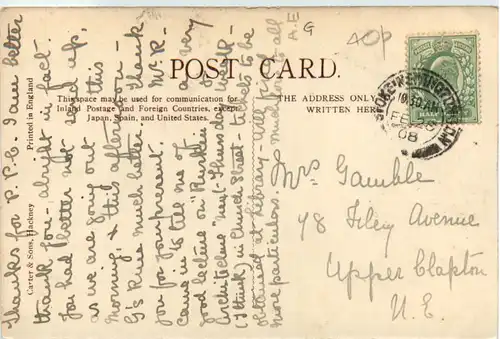 A.E
G
40P
POST CARD.
This space may be used for communication for
Inland Postage and Foreign Countries, except
Japan, Spain, and United States.
THE ADDRESS ONLY
WRITTEN HERE
Printed in England
Carter & Sons, Hackney
STOKE NEWINGTON
10.30 AM
FE
08
HALF
Mrs Gamble
78 Filey Avenue
Upper Clapton
N.E.
Thanks for P.P.C. I am better
thank you - alryht in fact.
You had better not send up,
as we are going out this
morning, & this afternoon -
G's Russ much better. - thank
you for yr present. Mr R.
came in to tell me of a very
good lecture on "Ruskin
Architecture" next Thursday Week -
(I think) in Church Street - tickets to be
obtained at Library - Will find out
more particulars. Much love to all